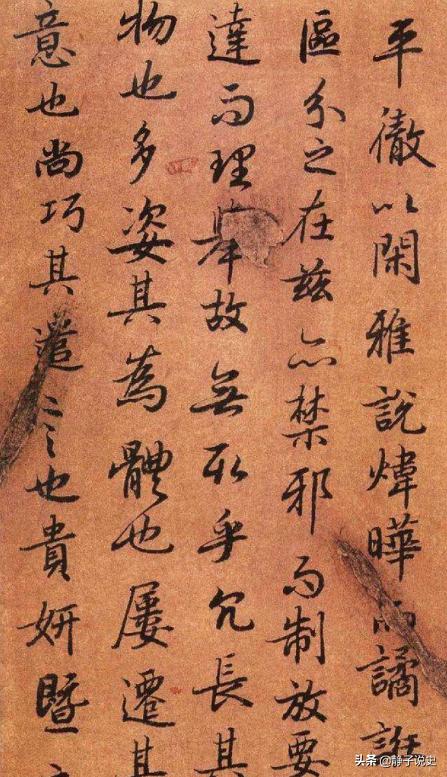 平徹以閑雅說煒曄而譎誑
區分之在茲亦禁邪而制放要
達而理舉故無取乎冗長其
物也多姿其為體也屢遷其
意也尚巧其遣言也貴妍暨
头条 @静子说史